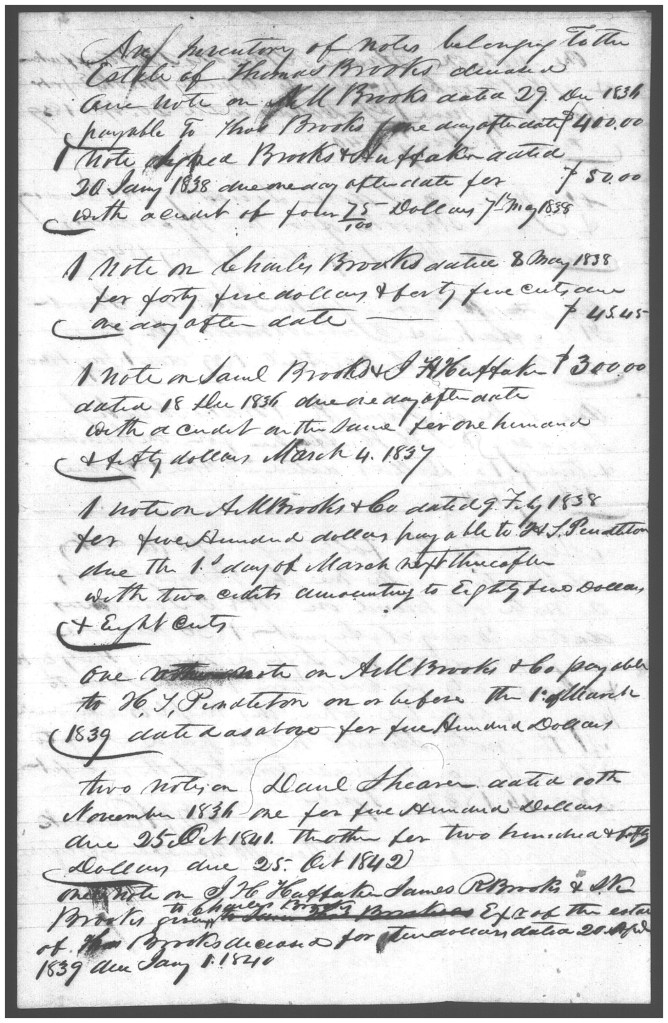 An Inventory of notes belonging to the
Estate of Thomas Brooks deceased
One note on A M Brooks dated 29. Dec 1836
payable to Thos Brooks one day after date $400.00
1 Note signed Brooks & Huffaker dated
20 Jany 1838 due one day after date for $50.00
with a credit of four 75/100 Dollars 7th May 1838
1 Note on Charles Brooks dated 8 May 1838
for forty five dollars & forty five cents due
one day after date — $45.45
1 note on Saml Brooks & J H Huffaker $300.00
dated 18 Dec 1836 due one day after date
with a credit on the same for one hundred
& fifty dollars March 4. 1837
1 note on A M Brooks & Co dated 9 Feby 1838
for five Hundred dollars payable to H S. Pendleton
due the 1st day of March next thereafter
with two credits amounting to Eighty two Dollars
& Eight Cents
One note on A M Brooks & Co payable
to H. S. Pendleton on or before the 1st of March
1839 dated as above for five Hundred Dollars
two notes on Danl Shearer dated 10th
November 1836 one for five Hundred Dollars
due 25 Oct 1841. the other for two hundred & fifty
Dollars due 25 Oct 1842
one note on J H Huffaker James R Brooks & S. K
Brooks given to Charles Brooks Exr of the estate
of Thos Brooks deceased for ten dollars dated 20 April
1839 due Jany 1. 1840